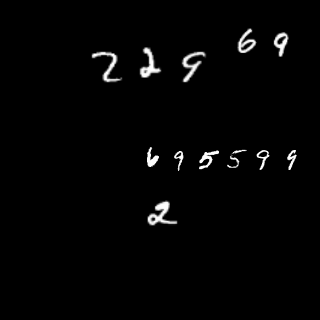 22969
695599
2